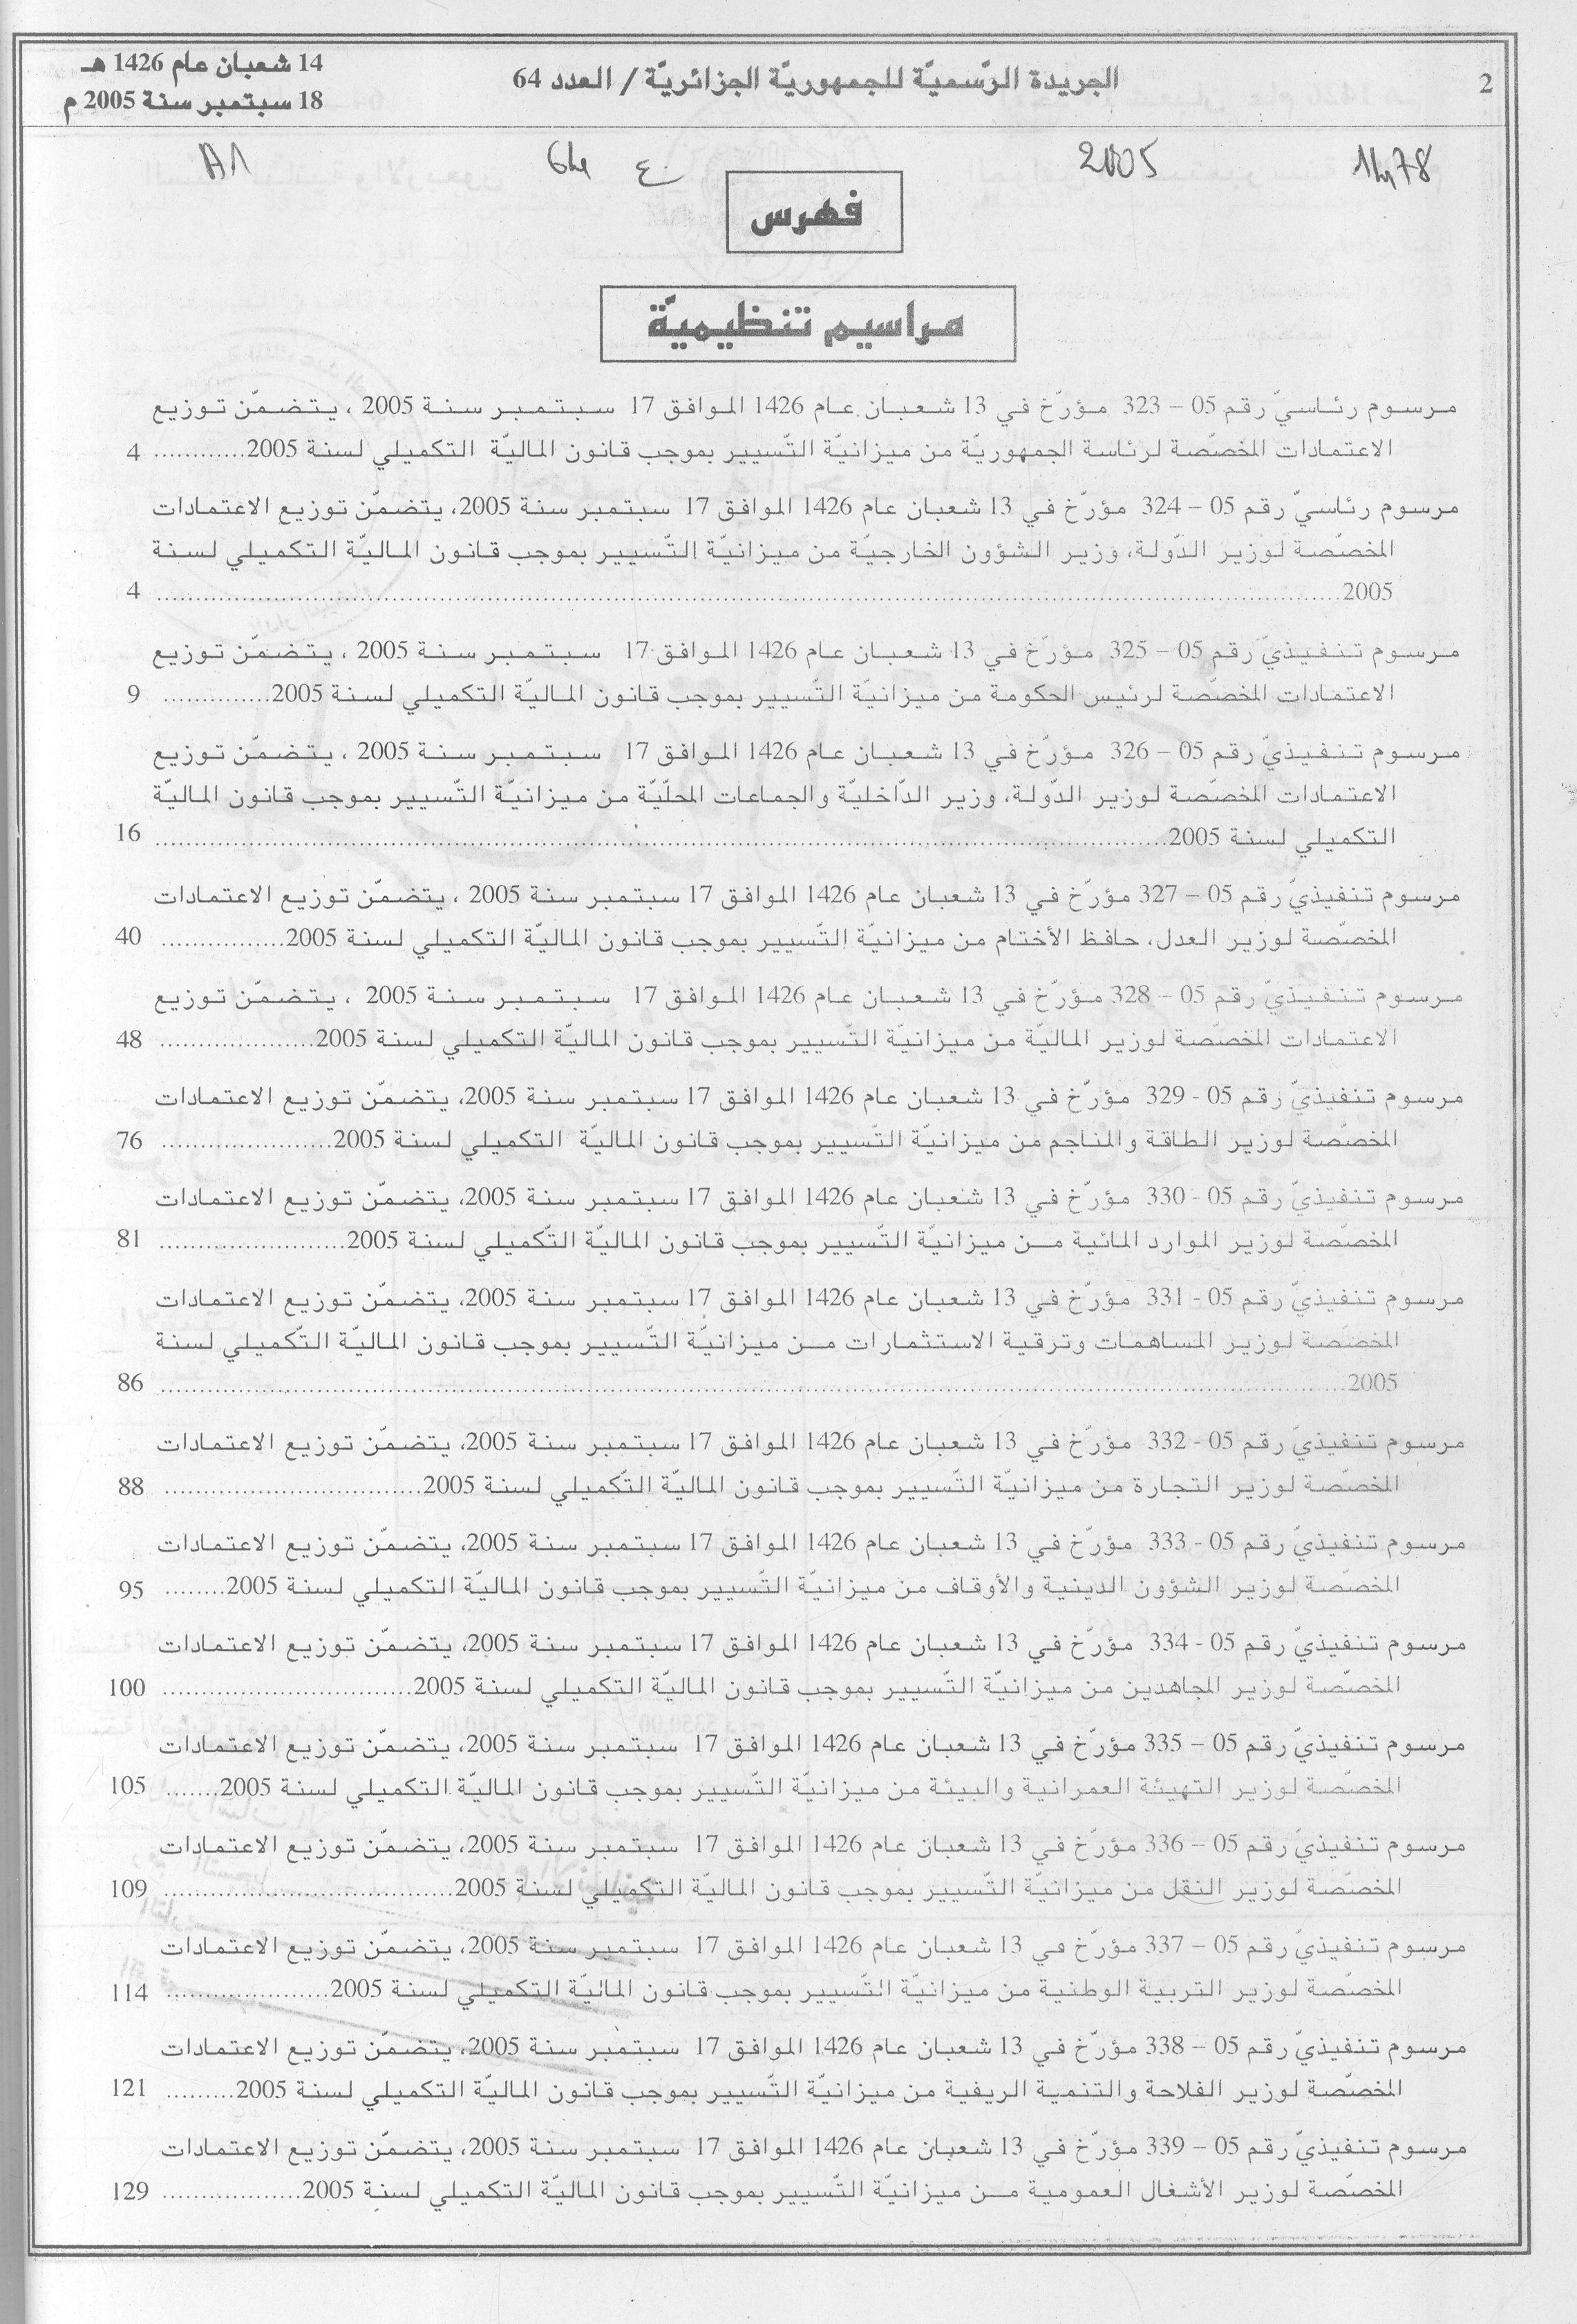 2
الجريدة الرّسميّة للجمهوريّة الجزائريّة / العدد 64
14 شعبان عام 1426 هـ
18 سبتمبر سنة 2005 م
1478 2005 ع 64 A1
فهرس
مراسيم تنظيميّة
مرسوم رئاسيّ رقم 05 – 323 مؤرّخ في 13 شعبان عام 1426 الموافق 17 سبتمبر سنة 2005 ، يتضمّن توزيع
الاعتمادات المخصّصة لرئاسة الجمهوريّة من ميزانيّة التّسيير بموجب قانون الماليّة التكميلي لسنة 2005............ 4
مرسوم رئاسيّ رقم 05 – 324 مؤرّخ في 13 شعبان عام 1426 الموافق 17 سبتمبر سنة 2005، يتضمّن توزيع الاعتمادات
المخصّصة لوزير الدّولة، وزير الشؤون الخارجيّة من ميزانيّة التّسيير بموجب قانون الماليّة التكميلي لسنة
2005............ 4
مرسوم تنفيذيّ رقم 05 – 325 مؤرّخ في 13 شعبان عام 1426 الموافق 17 سبتمبر سنة 2005 ، يتضمّن توزيع
الاعتمادات المخصّصة لرئيس الحكومة من ميزانيّة التّسيير بموجب قانون الماليّة التكميلي لسنة 2005............ 9
مرسوم تنفيذيّ رقم 05 – 326 مؤرّخ في 13 شعبان عام 1426 الموافق 17 سبتمبر سنة 2005 ، يتضمّن توزيع
الاعتمادات المخصّصة لوزير الدّولة، وزير الدّاخليّة والجماعات المحلّيّة من ميزانيّة التّسيير بموجب قانون الماليّة
التكميلي لسنة 2005............ 16
مرسوم تنفيذيّ رقم 05 – 327 مؤرّخ في 13 شعبان عام 1426 الموافق 17 سبتمبر سنة 2005 ، يتضمّن توزيع الاعتمادات
المخصّصة لوزير العدل، حافظ الأختام من ميزانيّة التّسيير بموجب قانون الماليّة التكميلي لسنة 2005............ 40
مرسوم تنفيذيّ رقم 05 – 328 مؤرّخ في 13 شعبان عام 1426 الموافق 17 سبتمبر سنة 2005 ، يتضمّن توزيع
الاعتمادات المخصّصة لوزير الماليّة من ميزانيّة التّسيير بموجب قانون الماليّة التكميلي لسنة 2005............ 48
مرسوم تنفيذيّ رقم 05 - 329 مؤرّخ في 13 شعبان عام 1426 الموافق 17 سبتمبر سنة 2005، يتضمّن توزيع الاعتمادات
المخصّصة لوزير الطاقة والمناجم من ميزانيّة التّسيير بموجب قانون الماليّة التكميلي لسنة 2005............ 76
مرسوم تنفيذيّ رقم 05 - 330 مؤرّخ في 13 شعبان عام 1426 الموافق 17 سبتمبر سنة 2005، يتضمّن توزيع الاعتمادات
المخصّصة لوزير الموارد المائية مـن ميزانيّة التّسيير بموجب قانون الماليّة التّكميلي لسنة 2005............ 81
مرسوم تنفيذيّ رقم 05 - 331 مؤرّخ في 13 شعبان عام 1426 الموافق 17 سبتمبر سنة 2005، يتضمّن توزيع الاعتمادات
المخصّصة لوزير المساهمات وترقية الاستثمارات مـن ميزانيّة التّسيير بموجب قانون الماليّة التّكميلي لسنة
2005............ 86
مرسوم تنفيذيّ رقم 05 - 332 مؤرّخ في 13 شعبان عام 1426 الموافق 17 سبتمبر سنة 2005، يتضمّن توزيع الاعتمادات
المخصّصة لوزير التجارة من ميزانيّة التّسيير بموجب قانون الماليّة التّكميلي لسنة 2005............ 88
مرسوم تنفيذيّ رقم 05 - 333 مؤرّخ في 13 شعبان عام 1426 الموافق 17 سبتمبر سنة 2005، يتضمّن توزيع الاعتمادات
المخصّصة لوزير الشؤون الدينية والأوقاف من ميزانيّة التّسيير بموجب قانون الماليّة التكميلي لسنة 2005........ 95
مرسوم تنفيذيّ رقم 05 - 334 مؤرّخ في 13 شعبان عام 1426 الموافق 17 سبتمبر سنة 2005، يتضمّن توزيع الاعتمادات
المخصّصة لوزير المجاهدين من ميزانيّة التّسيير بموجب قانون الماليّة التكميلي لسنة 2005............ 100
مرسوم تنفيذيّ رقم 05 – 335 مؤرّخ في 13 شعبان عام 1426 الموافق 17 سبتمبر سنة 2005، يتضمّن توزيع الاعتمادات
المخصّصة لوزير التهيئة العمرانية والبيئة من ميزانيّة التّسيير بموجب قانون الماليّة التكميلي لسنة 2005....... 105
مرسوم تنفيذيّ رقم 05 – 336 مؤرّخ في 13 شعبان عام 1426 الموافق 17 سبتمبر سنة 2005، يتضمّن توزيع الاعتمادات
المخصّصة لوزير النقل من ميزانيّة التّسيير بموجب قانون الماليّة التكميلي لسنة 2005............ 109
مرسوم تنفيذيّ رقم 05 – 337 مؤرّخ في 13 شعبان عام 1426 الموافق 17 سبتمبر سنة 2005، يتضمّن توزيع الاعتمادات
المخصّصة لوزير التربية الوطنية من ميزانيّة التّسيير بموجب قانون الماليّة التكميلي لسنة 2005............ 114
مرسوم تنفيذيّ رقم 05 – 338 مؤرّخ في 13 شعبان عام 1426 الموافق 17 سبتمبر سنة 2005، يتضمّن توزيع الاعتمادات
المخصّصة لوزير الفلاحة والتنمية الريفية من ميزانيّة التّسيير بموجب قانون الماليّة التكميلي لسنة 2005......... 121
مرسوم تنفيذيّ رقم 05 – 339 مؤرّخ في 13 شعبان عام 1426 الموافق 17 سبتمبر سنة 2005، يتضمّن توزيع الاعتمادات
المخصّصة لوزير الأشغال العمومية مـن ميزانيّة التّسيير بموجب قانون الماليّة التكميلي لسنة 2005............ 129